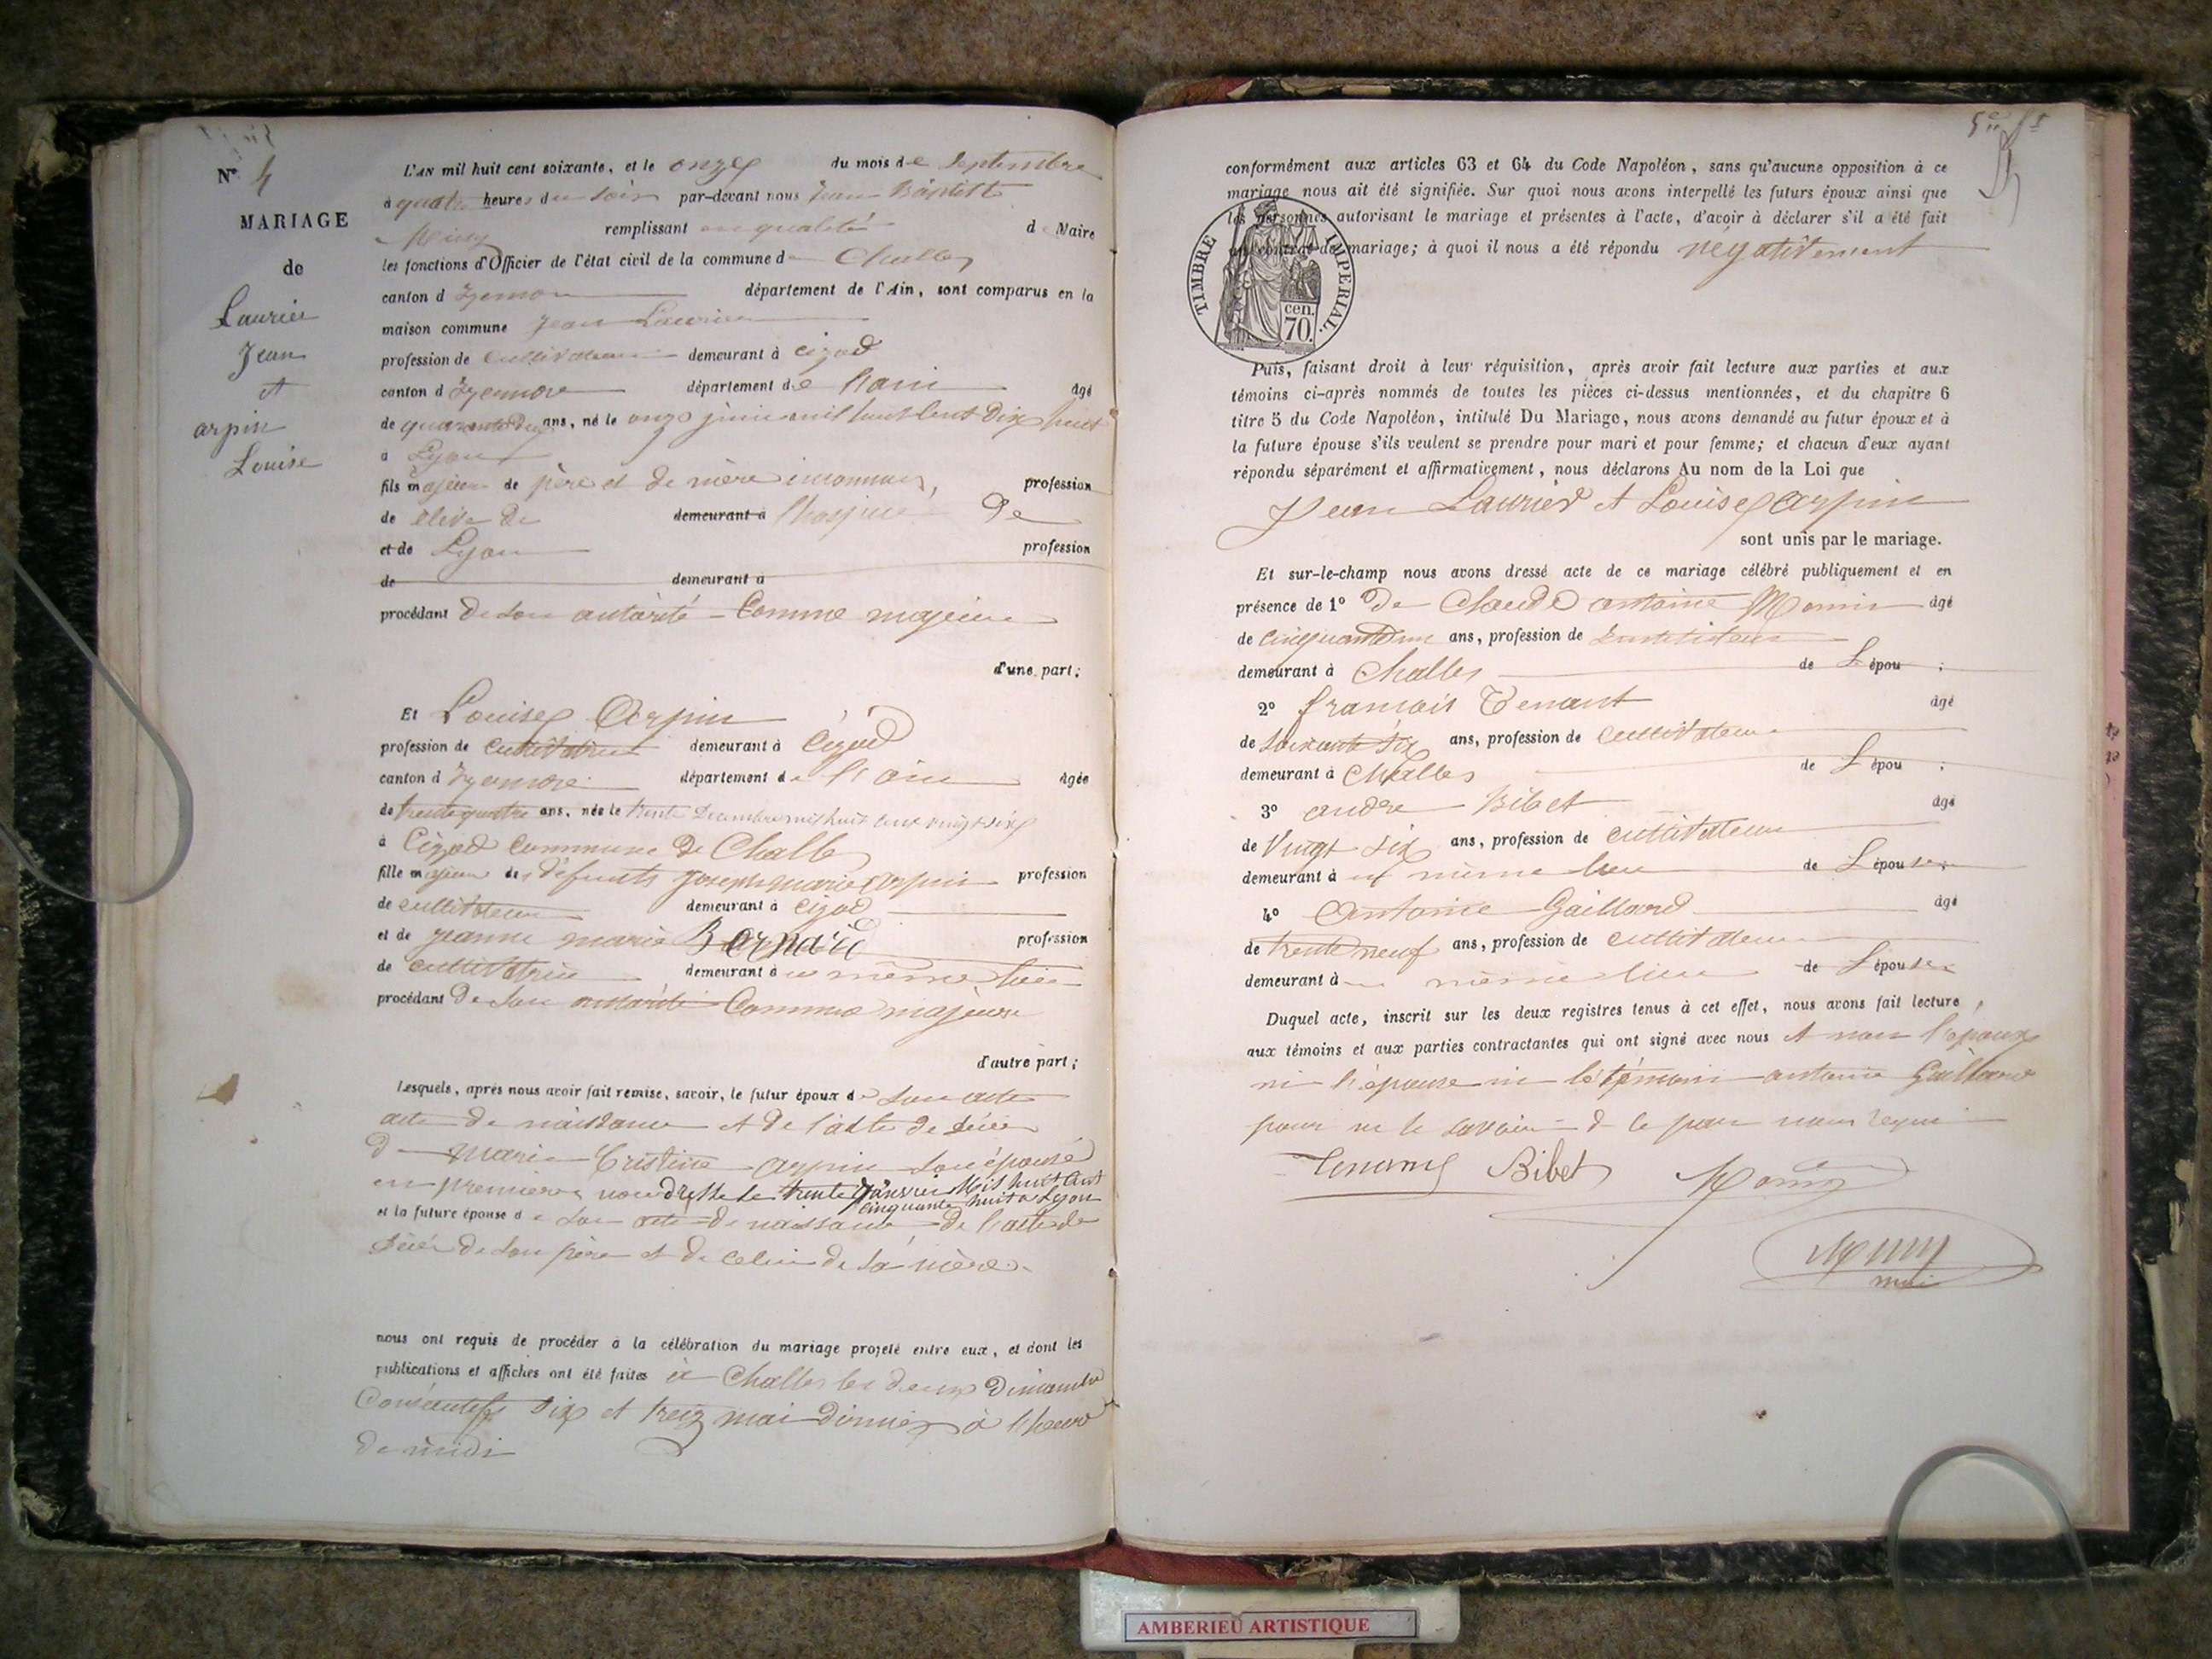 N° 4
MARIAGE
de
Laurier
Jean
et
arpin
Louise
L'AN mil huit cent soixante, et le onze du mois de Septembre
à quatre heures du soir par-devant nous Jean Baptiste
remplissant en qualité d Maire
les fonctions d'Officier de l'état civil de la commune d Challes
canton d département de l'Ain, sont comparus en la
maison commune Jean Laurier
profession de cultivateur demeurant à Cizod
canton d département de l'ain âgé
de quarante deux ans, né le onze juin mil huit cent dix huit
à Lyon
fils majeur de père et de mère inconnus, profession
de élève de demeurant à l'hospice De
et de Lyon profession
de demeurant à
procédant de son autorité Comme majeur
d'une part;
Et Louise Arpin
profession de cultivatrice demeurant à Cizod
canton d département de l'ain âgée
de trente quatre ans, née le trente Decembre mil huit cent vingt six
à Cizod commune de Challes
fille majeure des défunts Joseph marie arpin profession
de cultivateur demeurant à Cizod
et de jeanne marie Bernard profession
de cultivatrice demeurant à même lieu
procédant de son autorité Comme majeure
d'autre part;
Lesquels, après nous avoir fait remise, savoir, le futur époux de son acte
acte de naissance et de l'acte de décès
de Marie Cristine arpin son épouse
en premieres le trente janvier Mil huit cent
cinquante huit a Lyon
et la future épouse de son acte de naissance de l'acte de
décès de son père et de celui de sa mère.
nous ont requis de procéder à la célébration du mariage projeté entre eux, et dont les
publications et affiches ont été faites à Challes les deux Dimanche
consécutifs six et treize mai dernier à l'heure
de midi
conformément aux articles 63 et 64 du Code Napoléon, sans qu'aucune opposition à ce
mariage nous ait été signifiée. Sur quoi nous avons interpellé les futurs époux ainsi que
les personnes autorisant le mariage et présentes à l'acte, d'avoir à déclarer s'il a été fait
un contrat de mariage; à quoi il nous a été répondu négativement
TIMBRE IMPERIAL.
cen.
70.
Puis, faisant droit à leur réquisition, après avoir fait lecture aux parties et aux
témoins ci-après nommés de toutes les pièces ci-dessus mentionnées, et du chapitre 6
titre 5 du Code Napoléon, intitulé Du Mariage, nous avons demandé au futur époux et à
la future épouse s'ils veulent se prendre pour mari et pour femme; et chacun d'eux ayant
répondu séparément et affirmativement, nous déclarons Au nom de la Loi que
Jean Laurier et Louise arpin
sont unis par le mariage.
Et sur-le-champ nous avons dressé acte de ce mariage célébré publiquement et en
présence de 1° De Claude antoine Monin âgé
de cinquante un ans, profession de instituteur
demeurant à Challes de L épou ;
2° francois Tenant âgé
de soixante six ans, profession de cultivateur
demeurant à Challes de L épou ;
3° andre Bibet âgé
de Vingt six ans, profession de cultivateur
demeurant à même lieu de L épouse
4° Antoine Gaillard âgé
de trente neuf ans, profession de cultivateur
demeurant à même lieu de L épouse
Duquel acte, inscrit sur les deux registres tenus à cet effet, nous avons fait lecture
aux témoins et aux parties contractantes qui ont signé avec nous et non l'époux
ni l'épouse ni le témoin antoine Gaillard
pour ne le savoir de ce par nous requi
Tenant Bibet Monin
AMBERIEU ARTISTIQUE